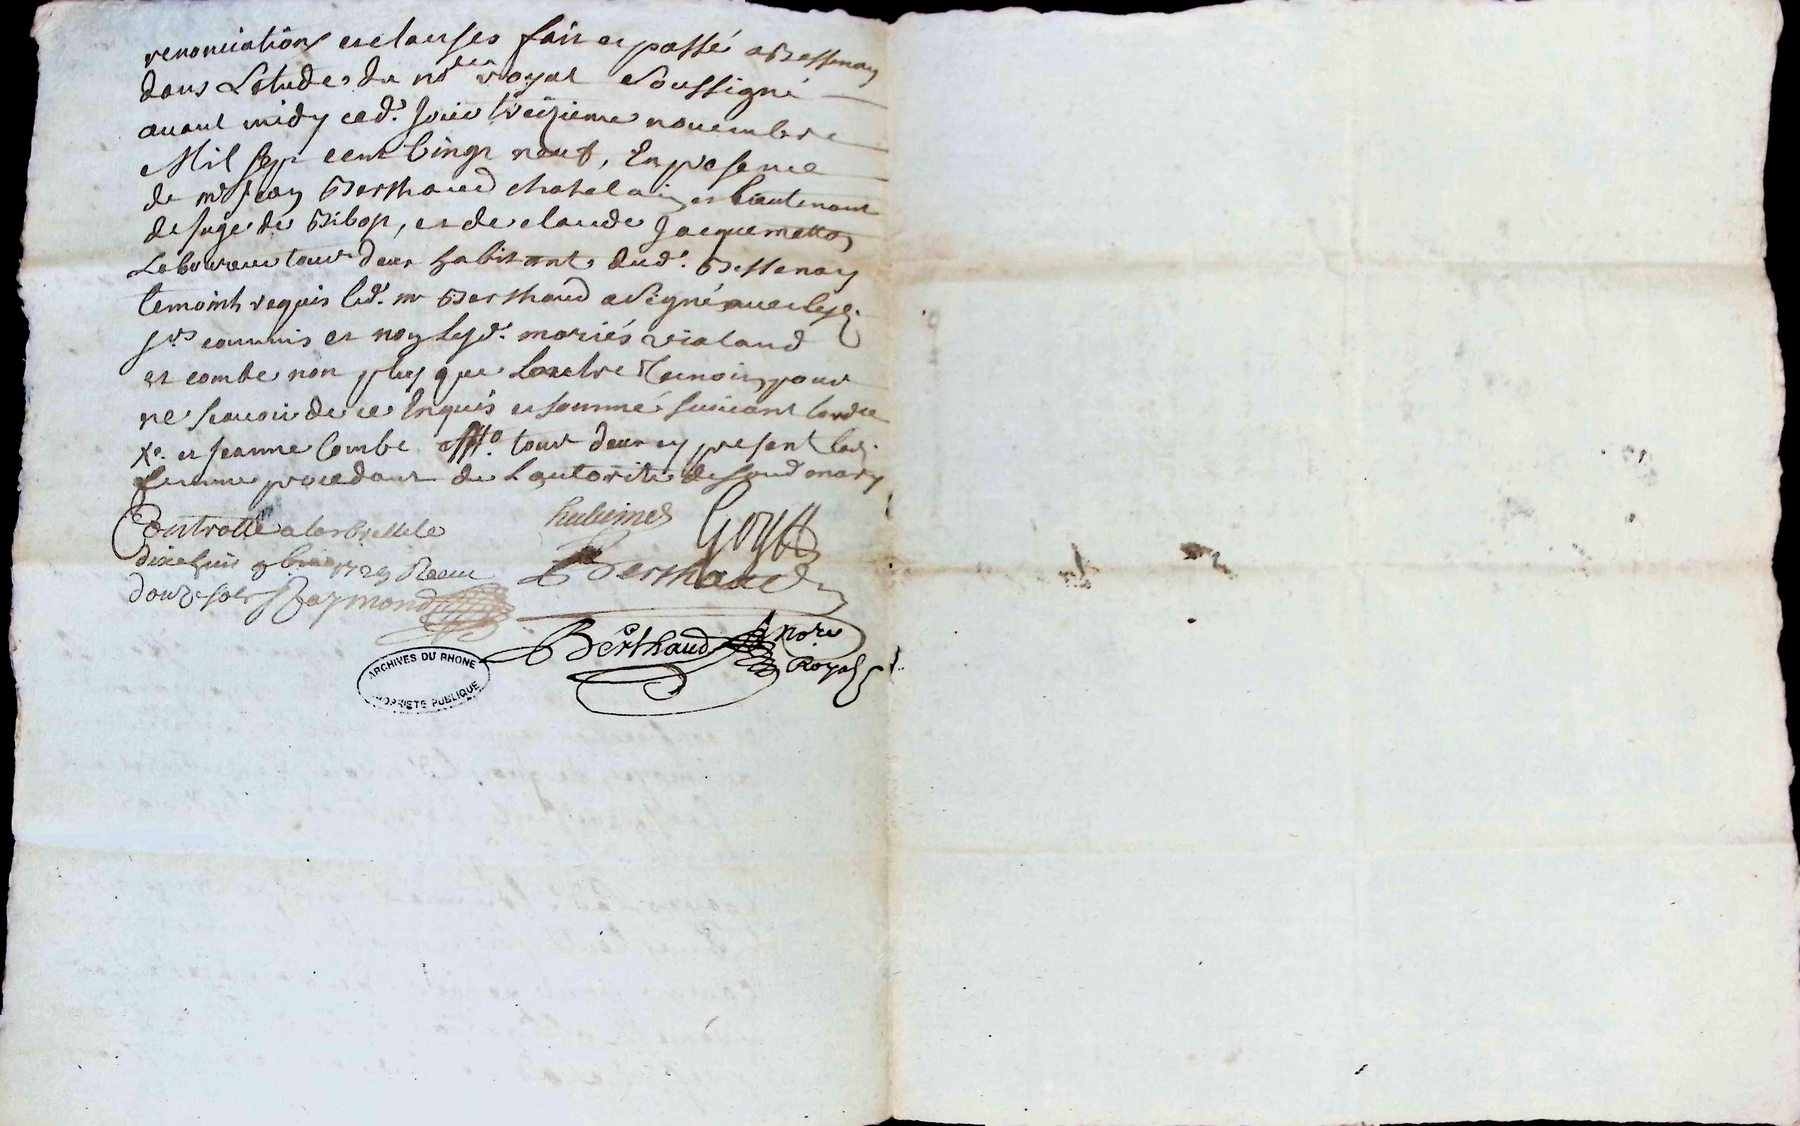 renonciations et clauses fait et passé a Bessenay
dans Letude du nore royal Soussigné
avant midy ced. Jour treizieme novembre
Mil sept cent vingt neuf, En presence
de mr Jean Berthaud chatelain et Lieutenant
de Juge de Bibost, et de claude Jacquemetton
Laboureur tous deux habitants dud. Bessenay
temoins requis led. mr Berthaud a Signé avec les
srs commis et non lesd. mariés vialand
et combe non plus que Lautre Temoin pour
ne scavoir de ce Enquis et sommé suivant lordre
xo. et jeanne Combe tous deux cy present lad.
femme procedant de Lautorité de sond mary
Controllé a larbresle le
dixehuit 9bre 1729 Receu
douze sols Raymond
Goy
Berthaud
Berthaud Nore
Royal
ARCHIVES DU RHONE
PROPRIETE PUBLIQUE